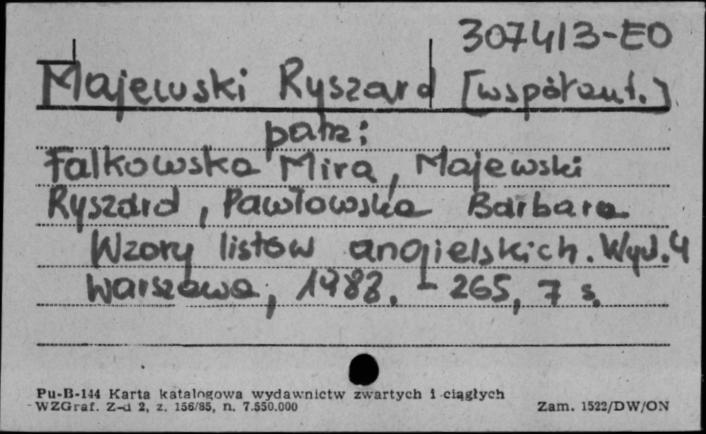 307413-EO
Majewski Ryszard [współaut.]
patrz:
Falkowska Mira, Majewski
Ryszard, Pawłowska Barbara
Wzory listów angielskich. Wyd. 4
Warszawa, 1983. - 265, 7 s.
Pu-B-144 Karta katalogowa wydawnictw zwartych i ciągłych
WZGraf. Z-d 2, z. 156/85, n. 7.550.000 Zam. 1522/DW/ON